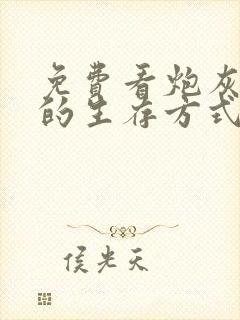 免費看炮灰
的生存方式
侯光天